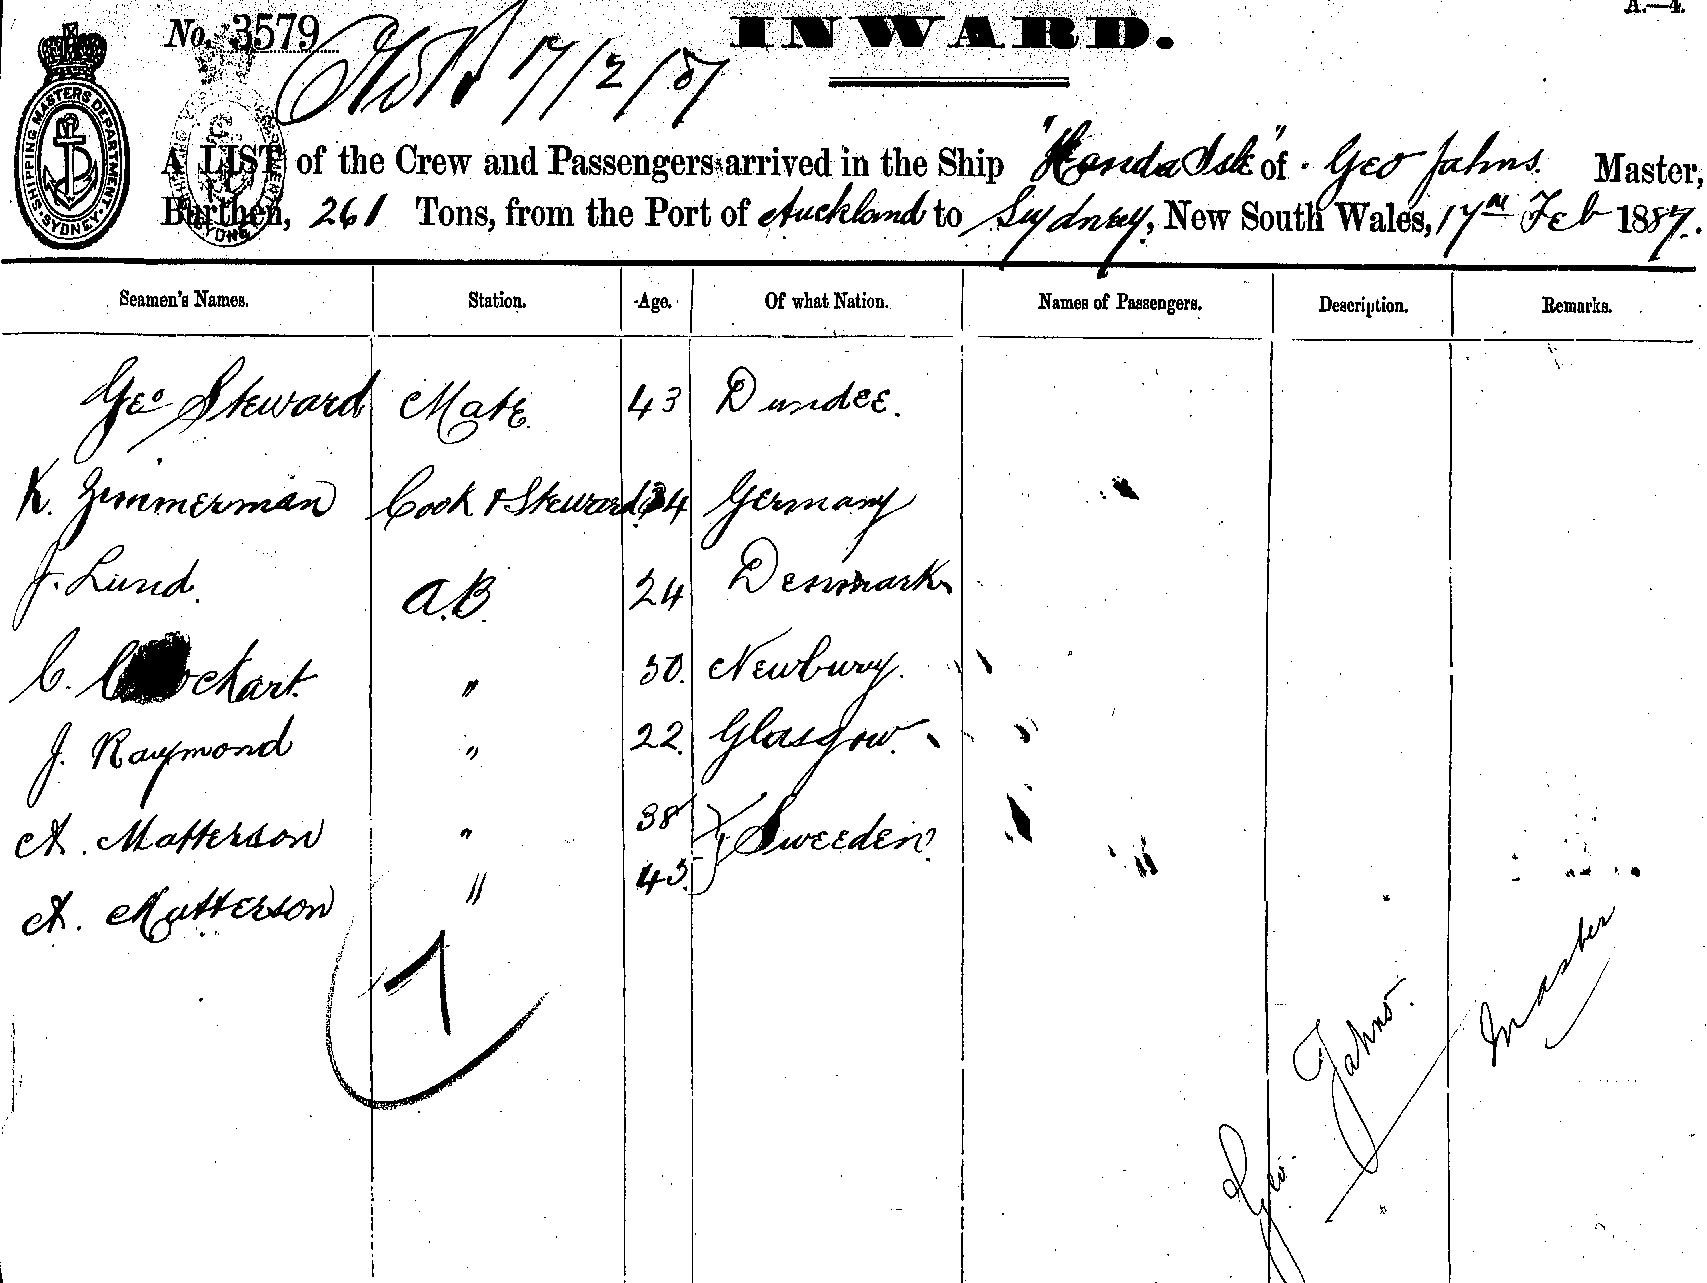 A.—4.
No. 3579
INWARD.
17/2/87
SHIPPING MASTERS DEPARTMENT SYDNEY
A LIST of the Crew and Passengers arrived in the Ship "Handa Isle" of Geo Jahns. Master,
Burthen, 261 Tons, from the Port of Auckland to Sydney, New South Wales, 17th Feb 1887.
Seamen's Names. Station. Age. Of what Nation. Names of Passengers. Description. Remarks.
Geo Steward Mate 43 Dundee.
K. Zimmerman Cook & Steward 34 Germany
J. Lund. A.B. 24 Denmark
C. 〃 30. Newbury.
J. Raymond 〃 22. Glasgow.
A. Matterson 〃 38 Sweeden
A. Matterson 〃 43.
7
Geo. Jahns. Master